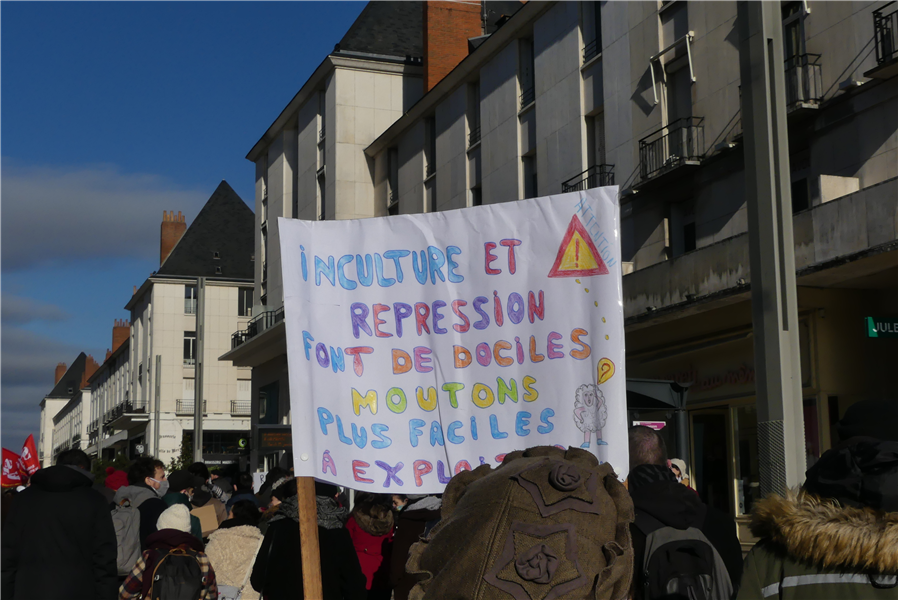 ATTENTION
iNCULTURE ET
REPRESSION
FONT DE DOCILES
MOUTONS
PLUS FACILES
À EXPLOI
?
JULE